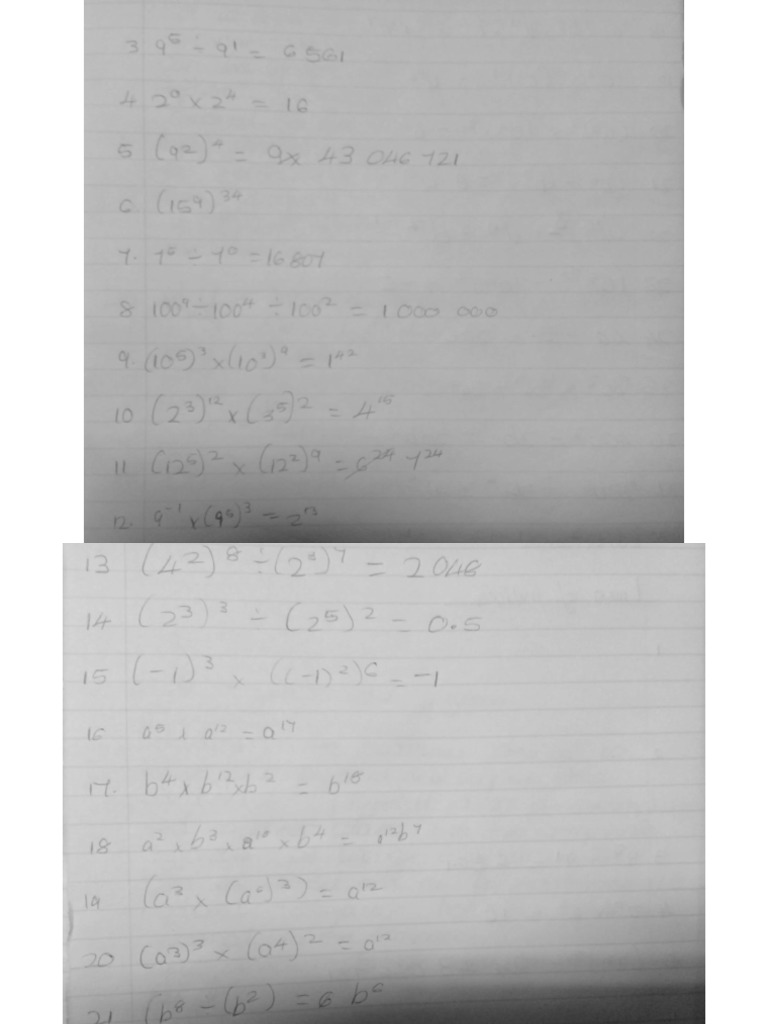 3 9⁵ ÷ 9¹ = 6 561
4 2⁰ × 2⁴ = 16
5 (9²)⁴ = 9x 43 046 721
6. (15⁹)³⁴
7. 7⁵ ÷ 7⁰ = 16 807
8 100⁹ ÷ 100⁴ ÷ 100² = 1 000 000
9. (10⁵)³ × (10³)⁹ = 1⁴²
10 (2³)¹² × (3⁵)² = 4¹⁵
11 (12⁵)² × (12²)⁹ = 6²⁴ 7²⁴
12. 9⁻¹ × (9⁵)³ = 2¹³
13 (4²)⁸ ÷ (2³)⁷ = 2 048
14 (2³)³ ÷ (2⁵)² = 0.5
15 (-1)³ × ((-1)²)⁶ = -1
16 a⁵ × a¹² = a¹⁷
17. b⁴ × b¹² × b² = b¹⁸
18 a² × b³ × a¹⁰ × b⁴ = a¹²b⁷
19 (a³ × (a⁰)³) = a¹²
20 (a³)³ × (a⁴)² = a¹²
21 (b⁸ - (b²) = 6 b⁶